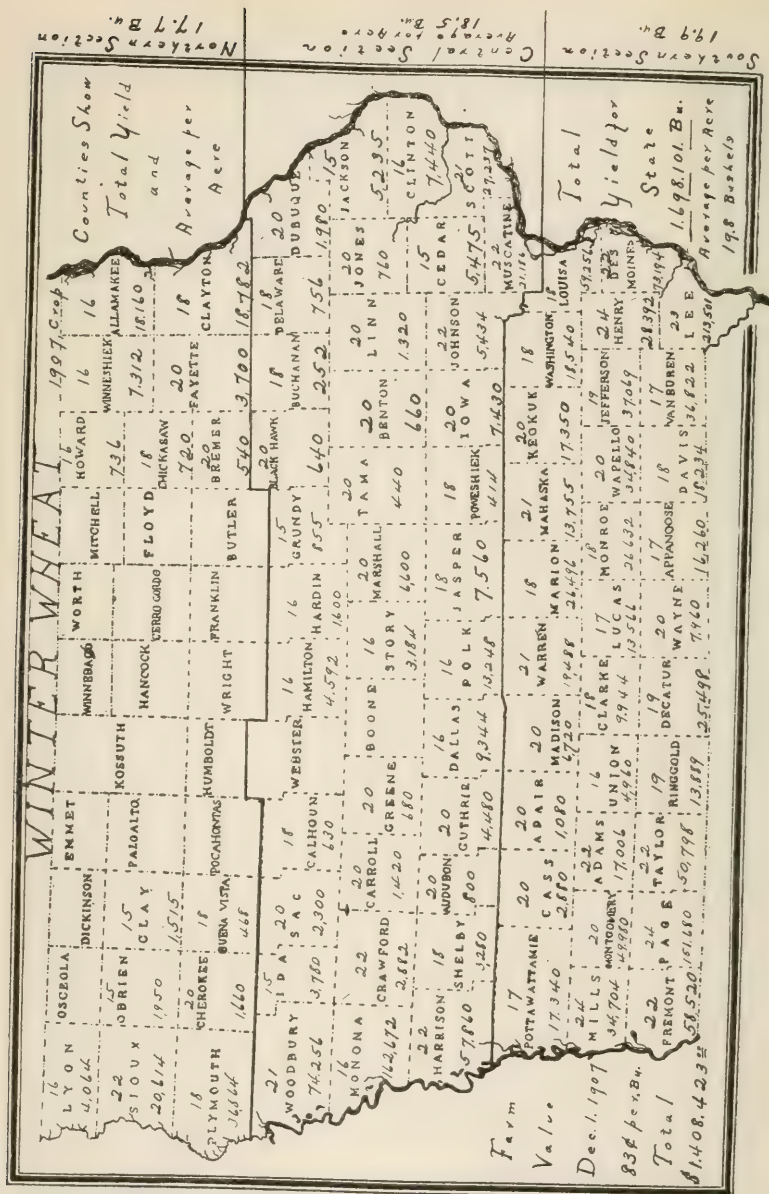 WINTER WHEAT
1907, Crop
Counties Show
Total Yield
and
Average per
Acre
Northern Section
17.7 Bu.
Central Section
Average per Acre
18.5 Bu.
Southern Section
19.9 Bu.
16
LYON
4,064
OSCEOLA
DICKINSON
EMMET
WINNEBAGO
WORTH
MITCHELL
16
HOWARD
736
16
WINNESHIEK
7,312
16
ALLAMAKEE
18,160
22
SIOUX
20,614
15
OBRIEN
1,950
15
CLAY
1,515
PALOALTO
KOSSUTH
HANCOCK
CERRO GORDO
FLOYD
18
CHICKASAW
720
20
FAYETTE
3,700
18
CLAYTON
18,782
18
PLYMOUTH
36,864
20
CHEROKEE
1,660
18
BUENA VISTA
468
POCAHONTAS
HUMBOLDT
WRIGHT
FRANKLIN
BUTLER
20
BREMER
540
21
WOODBURY
74,256
15
IDA
3,780
20
SAC
2,300
18
CALHOUN
630
WEBSTER
16
HAMILTON
4,592
16
HARDIN
1,600
15
GRUNDY
855
20
BLACK HAWK
640
18
BUCHANAN
252
18
DELAWARE
756
20
DUBUQUE
1,980
16
MONONA
162,672
22
CRAWFORD
2,882
20
CARROLL
1,420
20
GREENE
680
BOONE
16
STORY
3,184
20
MARSHALL
6,600
20
TAMA
440
20
BENTON
660
20
LINN
1,320
20
JONES
760
15
JACKSON
5,235
16
CLINTON
7,440
22
HARRISON
57,860
18
SHELBY
3,280
20
AUDUBON
800
20
GUTHRIE
4,480
16
DALLAS
9,344
16
POLK
13,248
18
JASPER
7,560
18
POWESHIEK
414
20
IOWA
7,430
22
JOHNSON
5,434
15
CEDAR
5,475
21
SCOTT
27,237
22
MUSCATINE
21,186
17
POTTAWATTAMIE
17,340
20
CASS
2,880
20
ADAIR
1,080
20
MADISON
6,720
21
WARREN
19,488
18
MARION
26,496
21
MAHASKA
13,755
20
KEOKUK
17,350
18
WASHINGTON
18,540
18
LOUISA
57,256
24
MILLS
34,704
20
MONTGOMERY
49,980
22
ADAMS
17,006
16
UNION
4,960
18
CLARKE
9,944
17
LUCAS
13,566
18
MONROE
26,632
20
WAPELLO
34,840
19
JEFFERSON
37,069
24
HENRY
28,392
22
DES
MOINES
22
FREMONT
58,520
24
PAGE
151,680
22
TAYLOR
50,798
19
RINGGOLD
13,889
19
DECATUR
25,498
20
WAYNE
7,960
17
APPANOOSE
16,260
18
DAVIS
18,234
17
VANBUREN
36,822
23
LEE
213,501
Farm
Value
Dec. 1, 1907
83¢ per. Bu.
Total
$1,408,423
Total
Yield for
State
1,698,101. Bu.
Average per Acre
19.8 Bushels